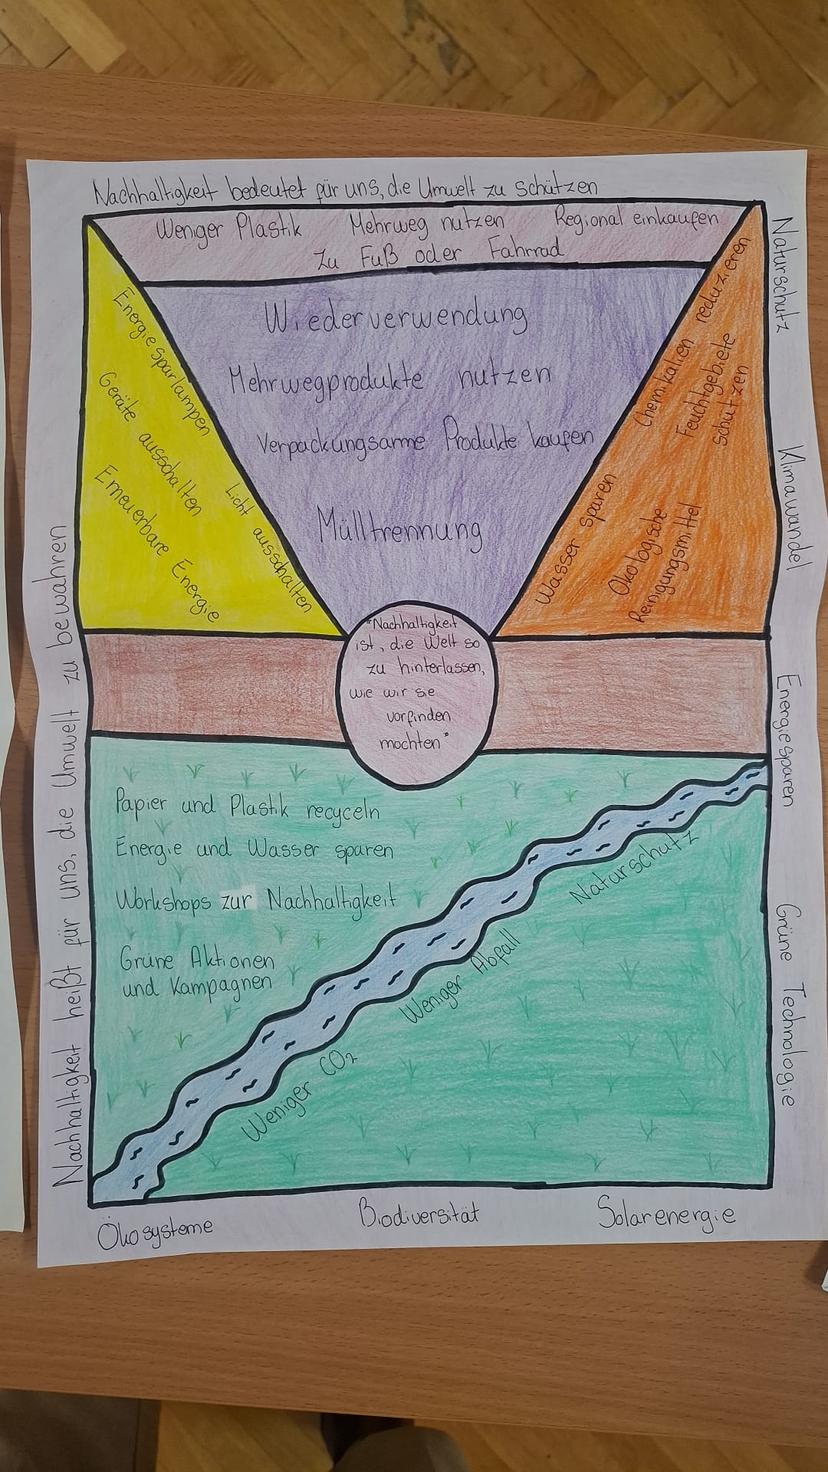 Nachhaltigkeit bedeutet für uns, die Umwelt zu schützen
Weniger Plastik Mehrweg nutzen Regional einkaufen
Zu Fuß oder Fahrrad
Wiederverwendung
Mehrwegprodukte nutzen
Verpackungsarme Produkte kaufen
Mülltrennung
Energiesparlampen
Geräte ausschalten
Licht ausschalten
Erneuerbare Energie
Chemikalien reduzieren
Feuchtgebiete
schützen
Wasser sparen
Ökologische
Reinigungsmittel
"Nachhaltigkeit
ist, die Welt so
zu hinterlassen,
wie wir sie
vorfinden
mochten"
Papier und Plastik recyceln
Energie und Wasser sparen
Workshops zur Nachhaltigkeit
Grüne Aktionen
und Kampagnen
Naturschutz
Weniger Abfall
Weniger CO₂
Nachhaltigkeit heißt für uns, die Umwelt zu bewahren
Naturschutz
Klimawandel
Energiesparen
Grüne Technologie
Ökosysteme Biodiversität Solarenergie